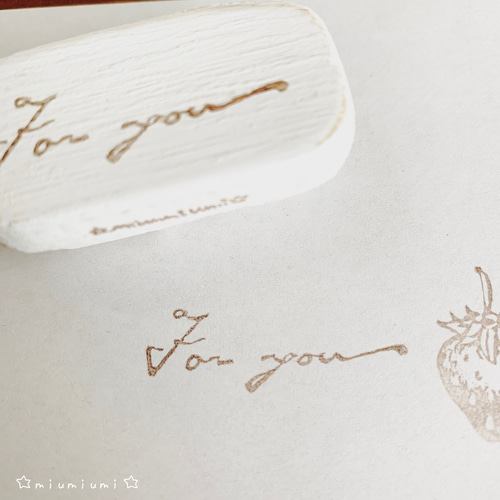 For you
☆miumiumi☆
For you
☆miumiumi☆